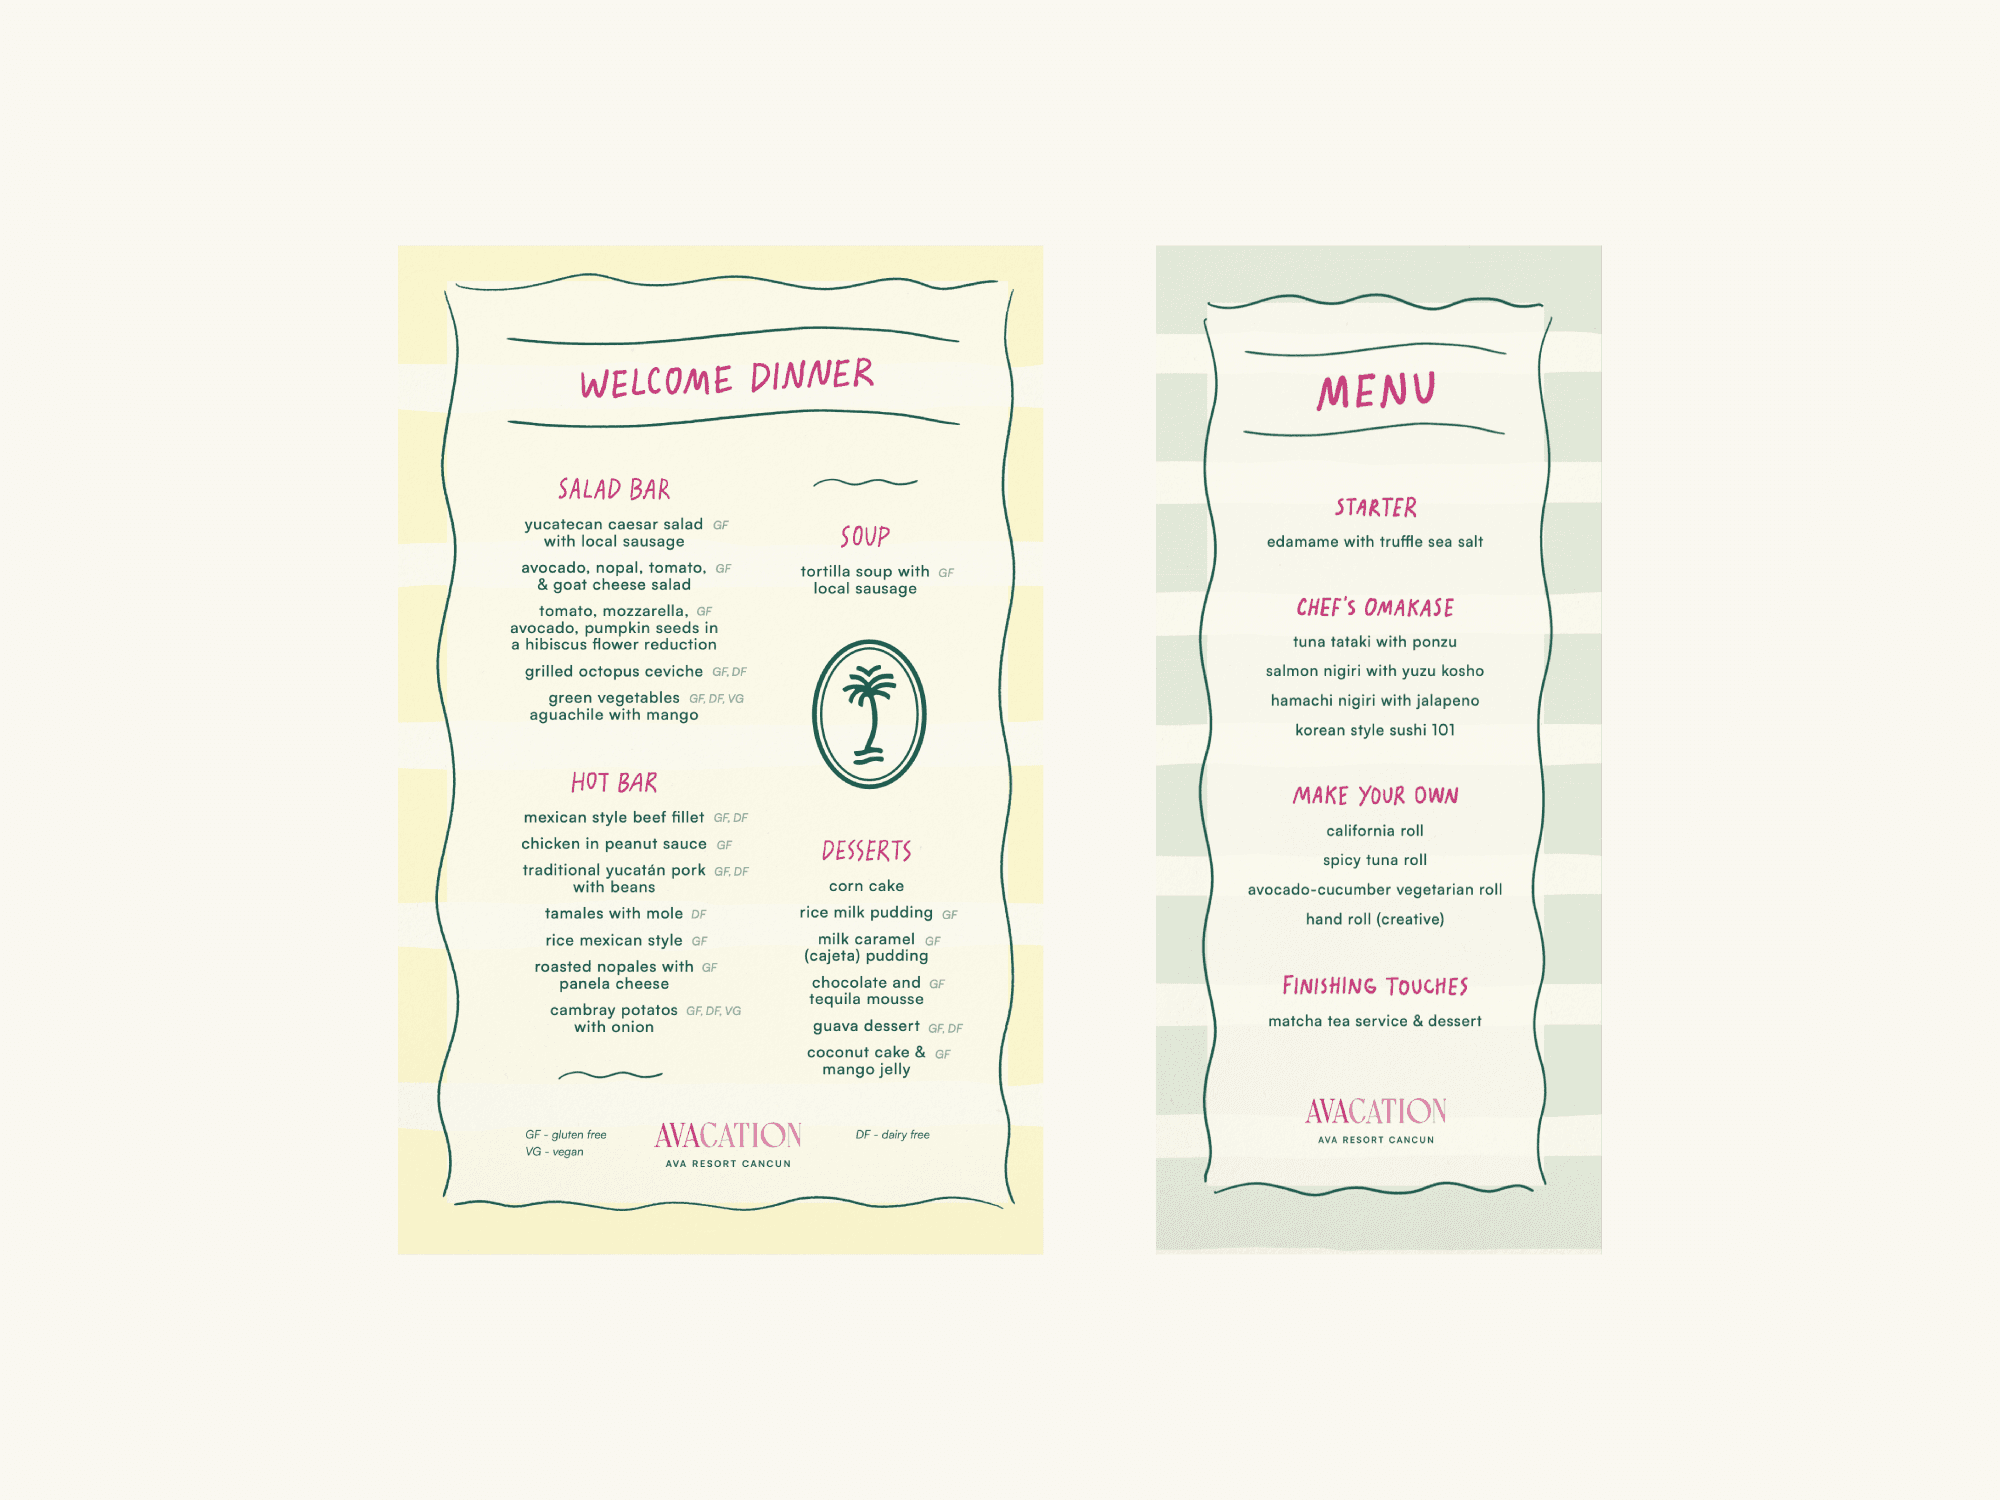 WELCOME DINNER
SALAD BAR
yucatecan caesar salad GF
with local sausage
avocado, nopal, tomato, GF
& goat cheese salad
tomato, mozzarella, GF
avocado, pumpkin seeds in
a hibiscus flower reduction
grilled octopus ceviche GF, DF
green vegetables GF, DF, VG
aguachile with mango
HOT BAR
mexican style beef fillet GF, DF
chicken in peanut sauce GF
traditional yucatán pork GF, DF
with beans
tamales with mole DF
rice mexican style GF
roasted nopales with GF
panela cheese
cambray potatos GF, DF, VG
with onion
SOUP
tortilla soup with GF
local sausage
DESSERTS
corn cake
rice milk pudding GF
milk caramel GF
(cajeta) pudding
chocolate and GF
tequila mousse
guava dessert GF, DF
coconut cake & GF
mango jelly
GF - gluten free
VG - vegan
AVACATION
AVA RESORT CANCUN
DF - dairy free
MENU
STARTER
edamame with truffle sea salt
CHEF'S OMAKASE
tuna tataki with ponzu
salmon nigiri with yuzu kosho
hamachi nigiri with jalapeno
korean style sushi 101
MAKE YOUR OWN
california roll
spicy tuna roll
avocado-cucumber vegetarian roll
hand roll (creative)
FINISHING TOUCHES
matcha tea service & dessert
AVACATION
AVA RESORT CANCUN